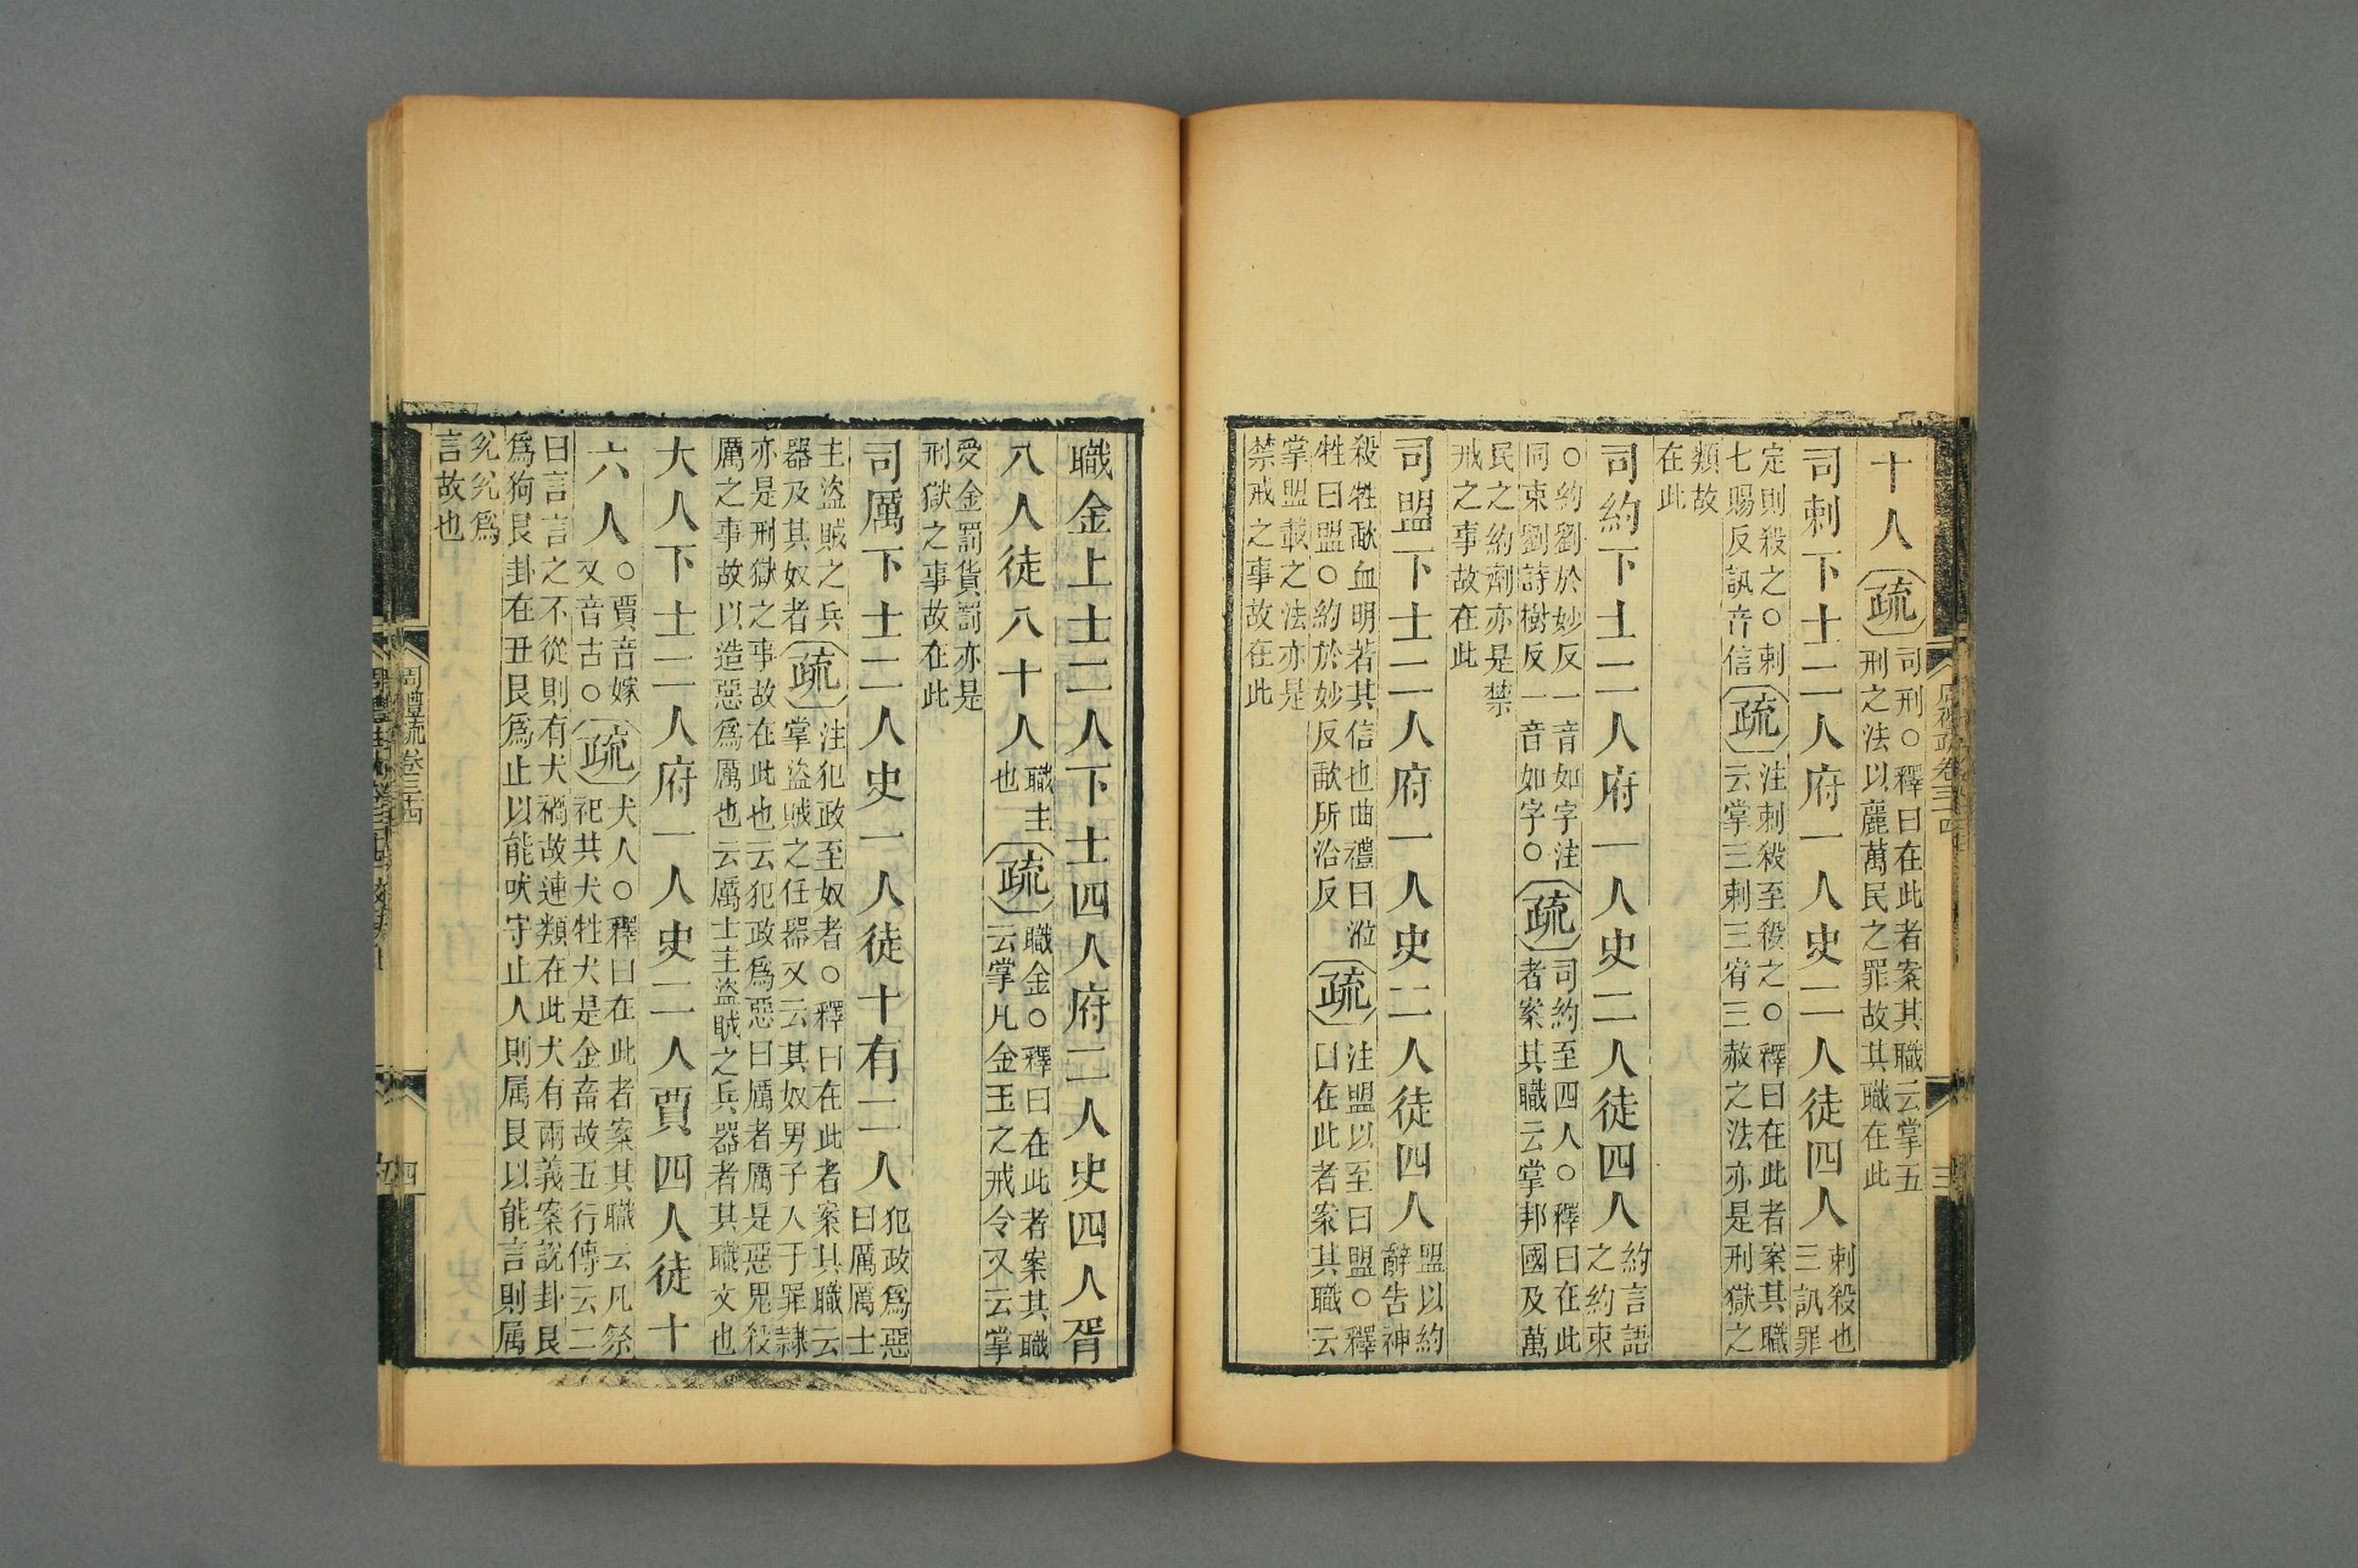 十人疏司刑○釋曰在此者案其職云掌五
刑之法以麗萬民之罪故其職在此
司刺下士二人府一人史二人徒四人刺殺也
三訊罪
定則殺之○刺
七賜反訊音信疏注刺殺至殺之○釋曰在此者案其職
云掌三刺三宥三赦之法亦是刑獄之
類故
在此
司約下士二人府一人史二人徒四人約言語
之約束
○約劉於妙反一音如字注
同束劉詩樹反一音如字○疏司約至四人○釋曰在此
者案其職云掌邦國及萬
民之約劑亦是禁
戒之事故在此
司盟下士二人府一人史二人徒四人盟以約
辭告神
殺牲歃血明若其信也曲禮曰涖
牲曰盟○約於妙反歃所洽反疏注盟以至曰盟○釋
曰在此者案其職云
掌盟載之法亦是
禁戒之事故在此
職金上士二人下士四人府二人史四人胥
八人徒八十人職主
也疏職金○釋曰在此者案其職
云掌凡金玉之戒令又云掌
受金罰貨罰亦是
刑獄之事故在此
司厲下士二人史一人徒十有二人犯政爲惡
曰厲厲士
主盜賊之兵
器及其奴者疏注犯政至奴者○釋曰在此者案其職云
掌盜賊之任器又云其奴男子入于罪隸
亦是刑獄之事故在此也云犯政爲惡曰厲者厲是惡鬼殺
厲之事故以造惡爲厲也云厲士主盜賊之兵器者其職文也
犬人下士二人府一人史二人賈四人徒十
六人○賈音嫁
又音古○疏犬人○釋曰在此者案其職云凡祭
祀共犬牲犬是金畜故五行傳云二
曰言言之不從則有犬禍故連類在此犬有兩義案說卦艮
爲狗艮卦在丑艮爲止以能吠守止人則属艮以能言則属
兌兌爲
言故也
周禮疏卷三十四
三
周禮疏卷三十四
四